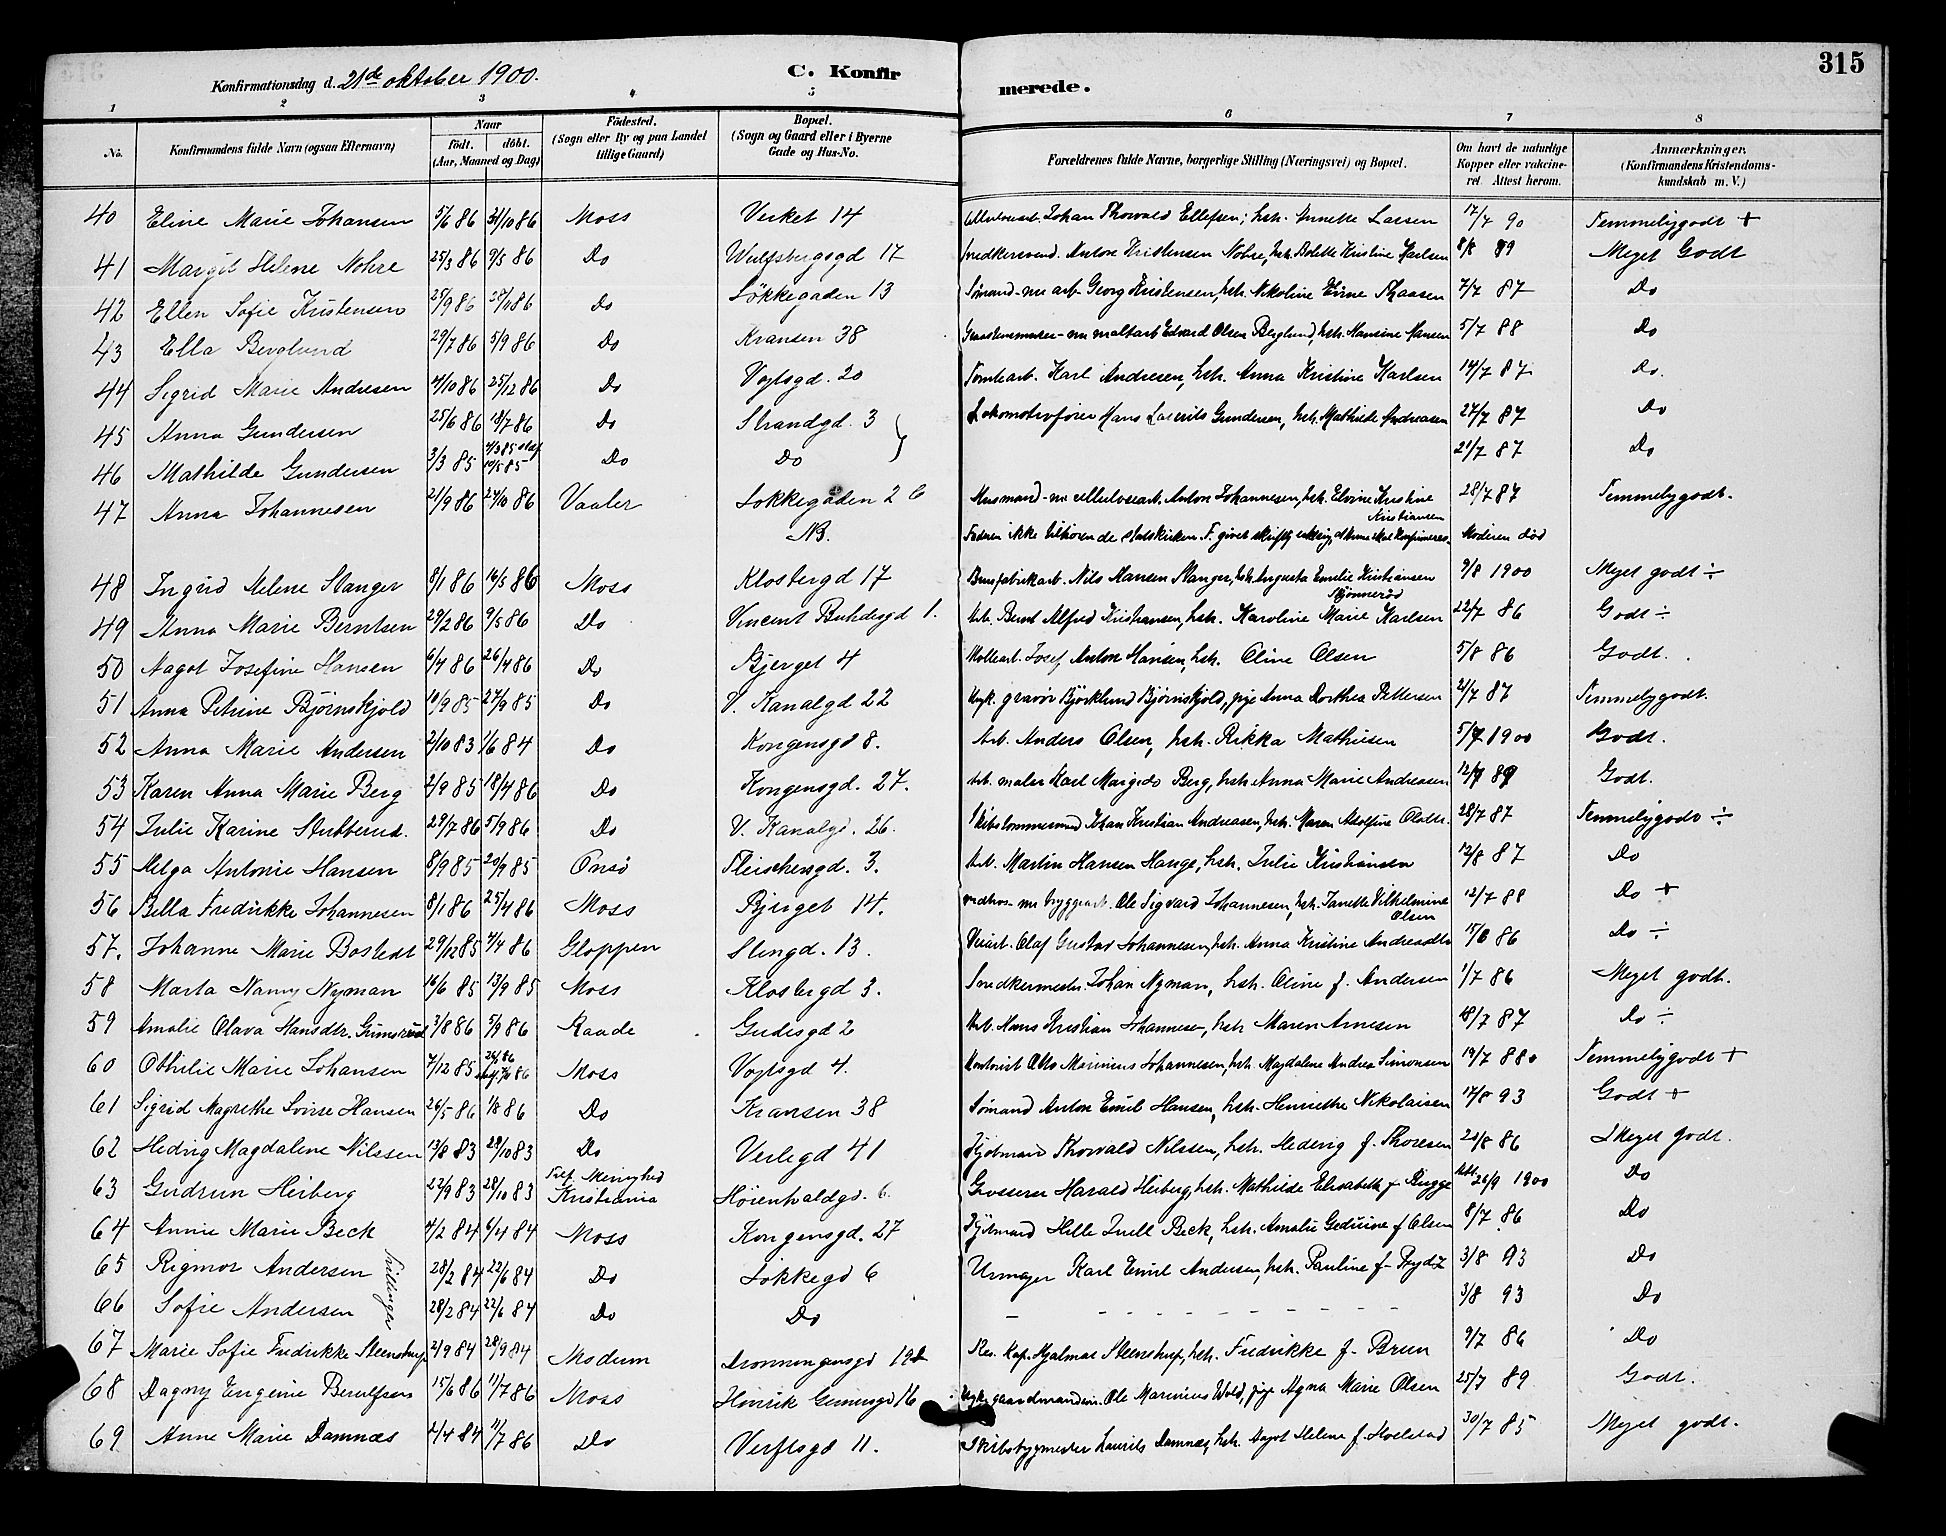 Konfirmationsdag d. 21de oktober 1900.
C. Konfirmerede.
315
1 2 3 4 5 6 7 8
No.
Konfirmandens fulde Navn (ogsaa Efternavn)
Naar
født. døbt.
(Aar, Maaned og Dag)
Fødested.
(Sogn eller By og paa Landet
tillige Gaard)
Bopæl.
(Sogn og Gaard eller i Byerne
Gade og Hus-No.
Forældrenes fulde Navne, borgerlige Stilling (Næringsvei) og Bopæl.
Om havt de naturlige
Kopper eller vakcine-
ret. Attest herom.
Anmærkninger.
(Konfirmandens Kristendoms-
kundskab m. V.)
40 Eline Marie Johansen 5/6 86 31/10 86 Moss Verket 14 Johan Thorvald Ellefsen, hstr. Annette Larsen 17/7 90 Temmeligodt +
41 Margit Helene Nohre 25/3 86 9/5 86 Do Wulfsbergsgd 17 Snedkersvend. Anton Kristensen Nohre, hstr. Bolette Kristine Karlsen 8/8 89 Meget Godt
42 Ellen Sofie Kristensen 25/9 86 Do Løkkegaden 13 Sømand-nu arb. Georg Kristensen, hstr. Nikoline 7/7 87 Do
43 Ella Berglund 29/7 86 5/9 86 Do Kransen 38 nu maltarb Edvard Olsen Berglund, hstr. Hansine Hansen 5/7 88 Do
44 Sigrid Marie Andresen 4/10 86 25/12 86 Do Vogtsgd. 20 Tomtearb. Karl Andresen, hstr. Anna Kristine Karlsen 14/7 87 Do.
45 Anna Gundersen 25/6 86 18/7 86 Do Strandgd. 3 Lokomotivfører Hans Laurits Gundersen, hstr. Mathilde Andreasen 27/7 87 Do
46 Mathilde Gundersen 3/3 85 10/5 85 Do Do 21/7 87 Do
47 Anna Johannesen 21/9 86 24/10 86 Vaaler Løkkegaden 26 Husmand-nu cellulosearb. Anton Johannesen, hstr. Elvine Kristine 28/7 87 Temmeligodt.
Kristiansen
NB. Faderen ikke tilhørende statskirken. F. givet skriftlig Moderen død
48 Ingrid Helene Slanger 8/1 86 16/5 86 Moss Klostergd 17 Nils Hansen Slanger, hstr. Augusta Emilie Kristiansen 9/8 1900 Meget godt ÷
49 Anna Marie Berntsen 29/2 86 9/5 86 Do Vincent Buhdesgd 1. Arb. Bernt Alfred Kristiansen, hstr. Karoline Marie Karlsen 22/7 86 Godt ÷
50 Nagot Josefine Hansen 6/4 86 26/4 86 Do Bjerget 4 Josef Anton Hansen, hstr. Oline Olsen 5/8 86 Godt.
51 Anna Petrine Bjørnskjold 10/9 85 27/9 85 Do V. Kanalgd 22 Ungk. gravør Björklund Bjørnskjold, pige Anna Dorthea Pettersen 2/7 87 Temmeligodt.
52 Anna Marie Andersen 2/10 83 1/6 84 Do Kongensgd 8. Arb. Anders Olsen, hstr. Rikka Mathiesen 5/7 1900 Godt.
53 Karen Anna Marie Berg 2/9 85 18/4 86 Do Kongensgd. 27. Arb. maler Karl Berg, hstr. Anna Marie Andreasen 12/7 89 Godt.
54 Julie Karine Stubberud. 29/7 86 5/9 86 Do V. Kanalgd. 26. Skibstømmermand Johan Kristian Andreasen, hstr. Maren Adolfine Olsdtr. 28/7 87 Temmeligodt ÷
55 Helga Antonie Hansen 8/9 85 20/9 85 Onsö Fleischersgd. 3. Arb. Martin Hansen Hauge, hstr. Julie Kristiansen 12/8 87 Do
56 Bella Fredrikke Johannesen 8/1 86 25/4 86 Moss Bjerget 14. nu bryggearb. Ole Sigvard Johannesen, hstr. Janette Vilhelmine 12/7 88 Do +
Olsen
57. Johanne Marie Bostedt 29/12 85 4/4 86 Gloppen Stengd. 13. Olaf Gustav Johannesen, hstr. Anna Kristine Andreasdtr 15/6 86 Do ÷
58 Marta Nanny Nyman 16/6 85 13/9 85 Moss Klostergd 3. Snedkermester Johan Nyman, hstr. Oline f. Andersen 1/7 86 Meget godt.
59 Amalie Olava Hansdtr. Gumsrud 3/8 86 5/9 86 Raade Gudesgd 2 Arb. Hans Kristian Johannesen, hstr. Maren Arnesen 18/7 87 Do ÷
60 Othilie Marie Johansen 7/12 85 Moss Vogtsgd 4. Kontorist Otto Marinius Johannesen, hstr. Magdalene Andrea Simonsen 19/7 88 Temmeligodt +
61 Sigrid Magrethe Lovise Hansen 26/5 86 1/8 86 Do Kransen 38 Sømand Anton Emil Hansen, hstr. Henriethe Nikolaisen 17/8 93 Godt +
62 Hedvig Magdalene Nilssen 13/8 83 28/10 83 Do Verlegd 41 Kjøbmand Thorvald Nilssen, hstr. Hedevig f. Thoresen 20/8 86 Meget godt.
63 Gudrun Heiberg 22/9 83 28/10 83 Kristiania Høienhaldgd. 6. Grosserer Harald Heiberg, hstr. Mathilde Elisabeth f. Brygge 26/9 1900 Do
64 Annie Marie Beck 4/2 84 6/4 84 Moss Kongensgd. 27 Kjøbmand Helle Juell Beck, hstr. Amalie f Olsen 8/7 86 Do
65 Rigmor Andersen 28/2 84 22/6 84 Do Løkkegd 6 Urmager Karl Emil Andersen, hstr. Pauline f. Prydz 3/8 93 Do
Tvillinger
66 Sofie Andersen 28/2 84 22/6 84 Do Do 3/8 93 Do
67 Marie Sofie Fredrikke Steenstrup 2/9 84 28/9 84 Modum Dronningensgd Res. Kap. Hjalmar Steenstrup, hstr. Fredrikke f. Brun 9/7 86 Do
68 Dagny Eugenie Berulfsen 15/6 86 11/7 86 Moss Henrik Gernersgd 16 Ungk. Ole Marinius Wold, pige Agna Marie Olsen 25/7 89 Godt.
69 Anne Marie Damnæs 2/4 84 11/7 86 Do Verftsgd 11. Skibsbygmester Laurits Damnæs, hstr. Nagot Helene f. Hvelstad 30/7 85 Meget godt.